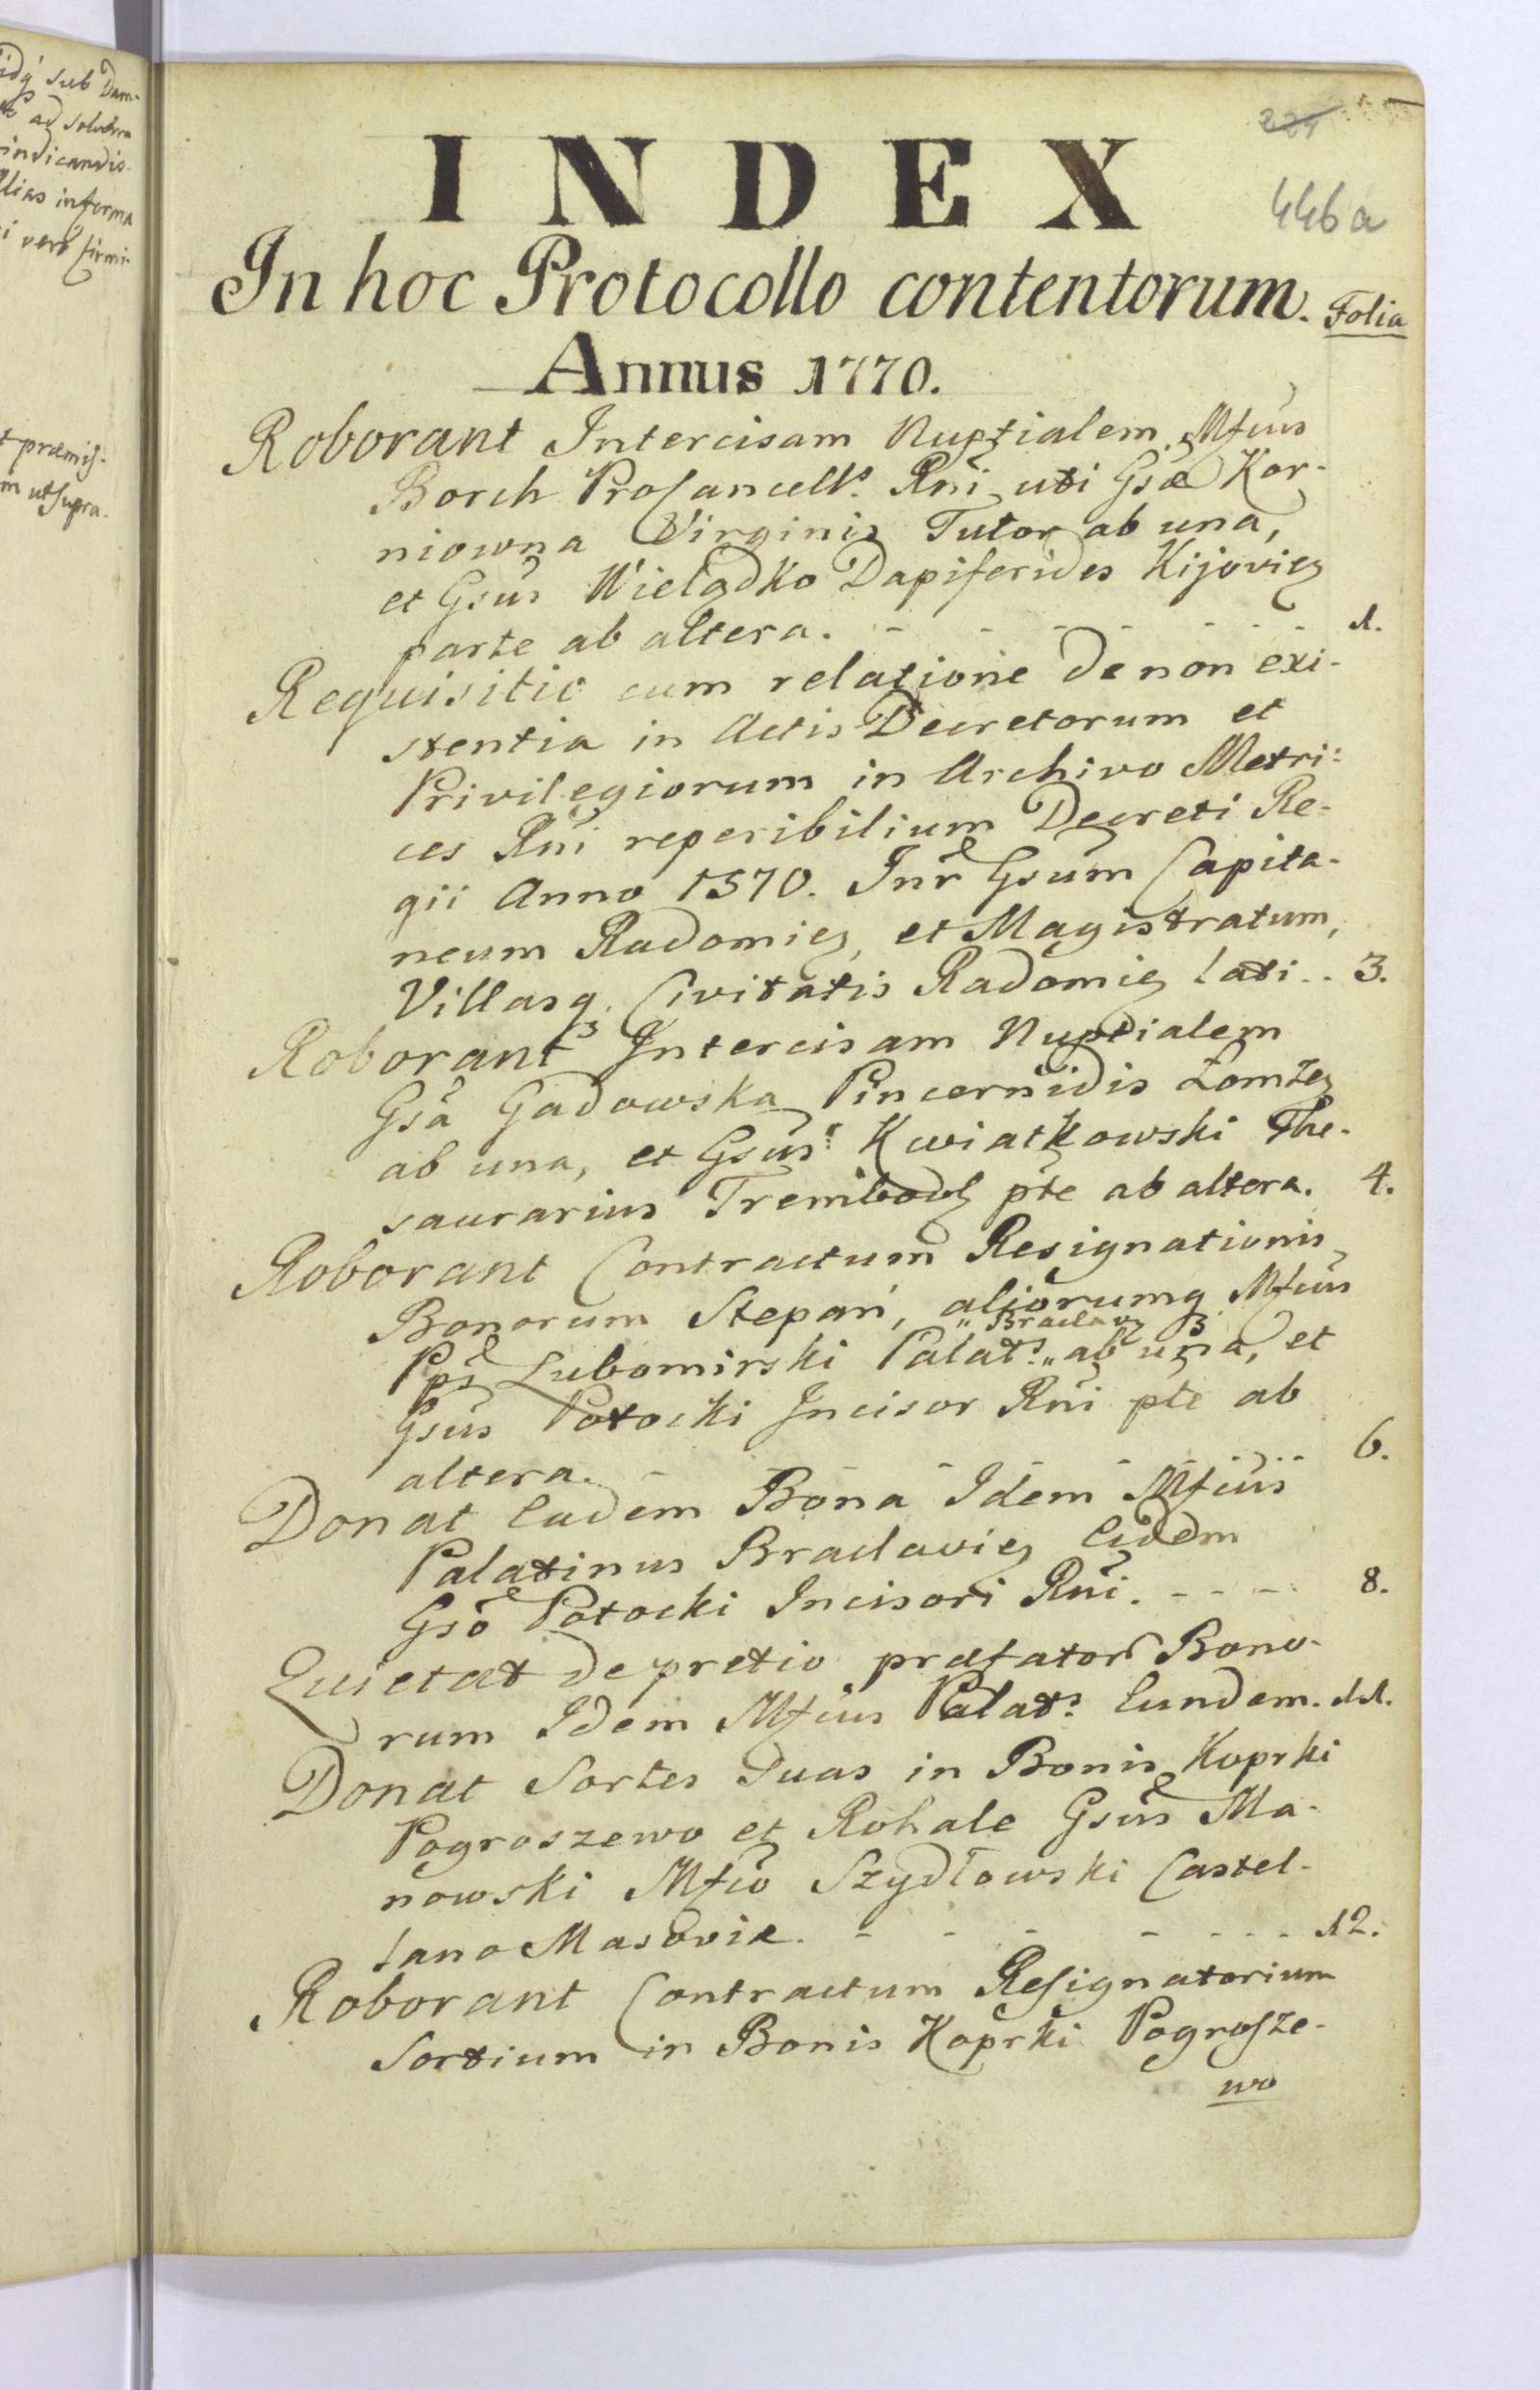 idq sub Dam-
ad solution
indicandis
alias informa
i vero firmi-
t præmis-
m ut supra.
221
446a
INDEX
In hoc Protocollo contentorum. Folia
Annus 1770.
Roborant Intercisam Nuptialem Mfĩus
Borch Procancells. Rñi uti Gsæ Kor-
niowna Virginis Tutor ab una,
et Gsũs Wielądko Dapiferides Kijovieȝ
parte ab altera. - - - - - - - 1.
Requisitio cum relatione de non exi-
stentia in Actis Decretorum et
Privilegiorum in Archivo Metri-
ces Rñi reperibilium Decreti Re-
gii Anno 1570. Inr̃ Gsũm Capita-
neum Radomieȝ, et Magistratum,
Villasqȝ Civitatis Radomieȝ lati.. 3.
Roborant Intercisam Nuptialem
Gsã Gadowska Pincernidis Łomżeȝ
ab una, et Gsũs Kwiatkowski The-
saurarius Trembowlȝ pt̃e ab altera. 4.
Roborant Contractum Resignationis
Bonorum Stepań, aliorumqȝ Mfĩus
„Braclavȝ
Ps̃ Lubomirski Palats.„ ab una, et
Gsũs Potocki Incisor Rñi pt̃e ab
altera. - - - - - - - 6.
Donat Eadem Bona Idem Mfĩus
Palatinus Braclavieȝ Eidem
Gsõ Potocki Incisori Rñi. - - - 8.
Quietat de pretio præfator̃ Bono-
rum Idem Mfĩus Palats. Eundem. 11.
Donat Sortes Suas in Bonis Koprki
Pogroszewo et Rohale Gsũs Ma-
nowski Mfĩo Szydłowski Castel-
lano Masoviæ. - - - - - - - 12.
Roborant Contractum Resignatorium
Sortium in Bonis Koprki Pogrosze-
wo